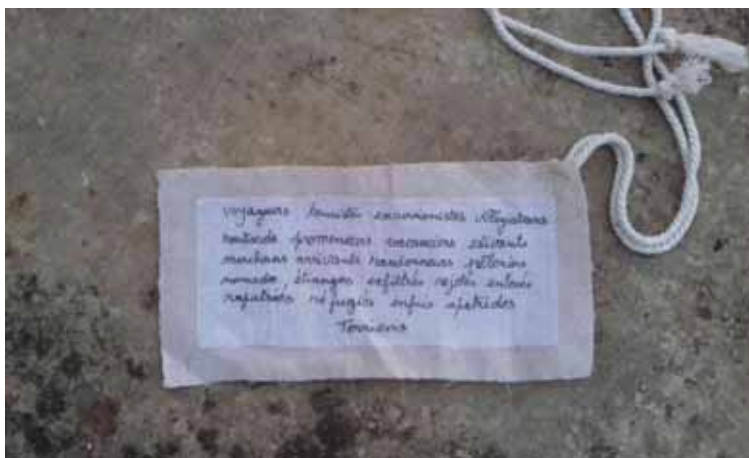 voyageurs touristes excursionnistes villégiateurs
routards promeneurs vacanciers estivants
marcheurs arrivants randonneurs pèlerins
nomades étrangers exfiltrés rejetés entrés
rapatriés réfugiés enfuis apatrides
Terriens